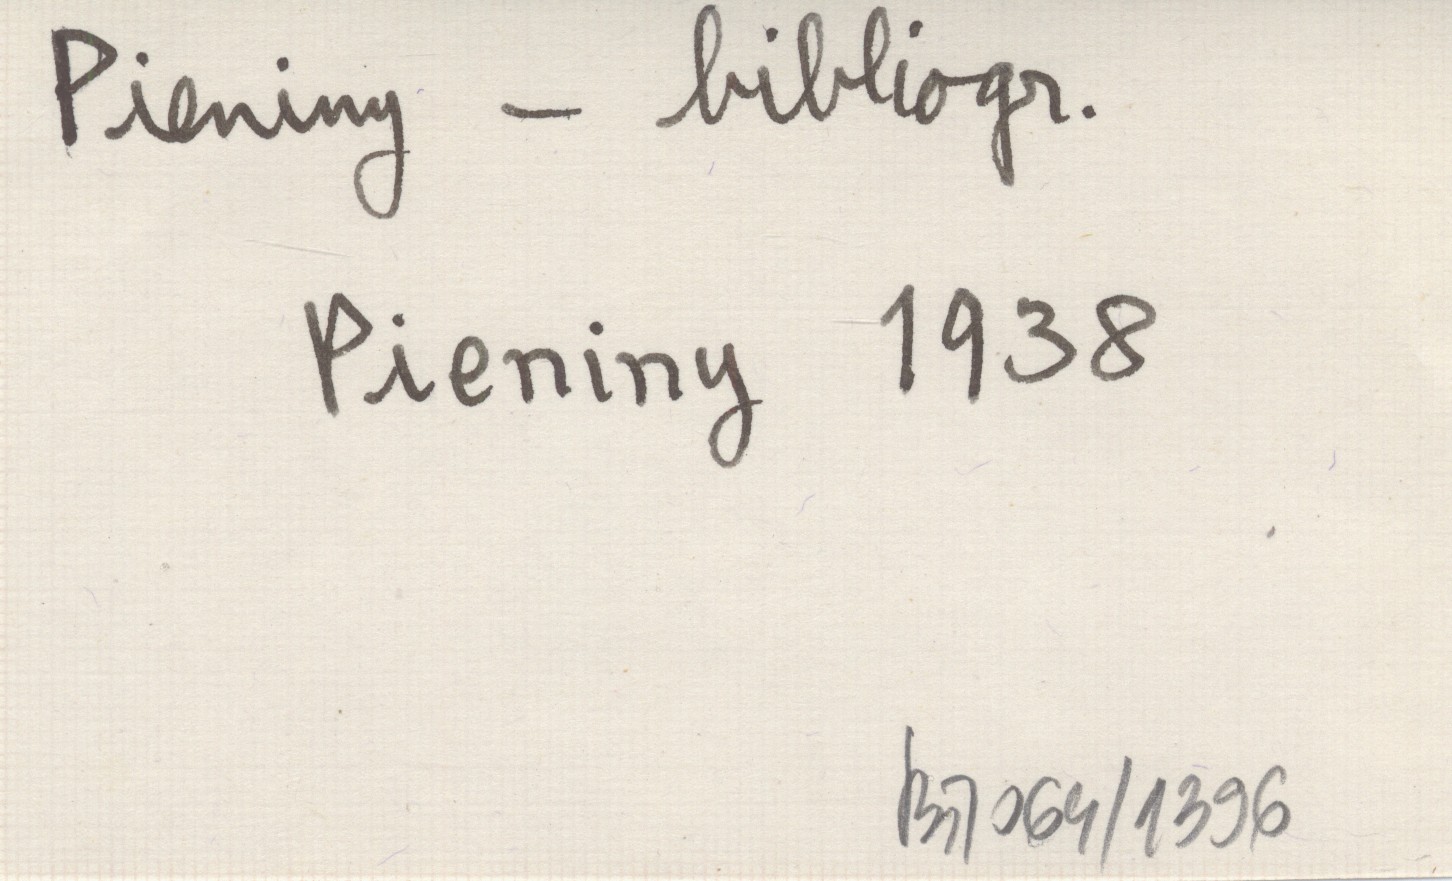 Pieniny - bibliogr.
Pieniny 1938
064/1396